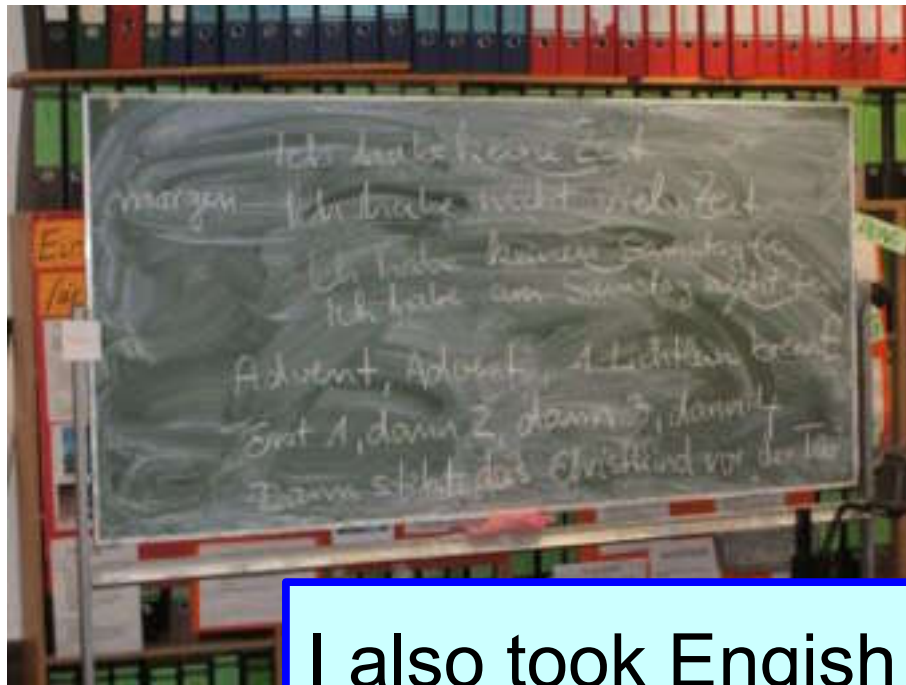 Ich habe keine Zeit
morgen Ich habe nicht viel Zeit
Ich habe keinen Samstag
Ich habe am Samstag
Advent, Advent, 1 Lichtlein brennt
Erst 1, dann 2, dann 3, dann 4
Dann steht das Christkind vor der Tür
I also took Engish